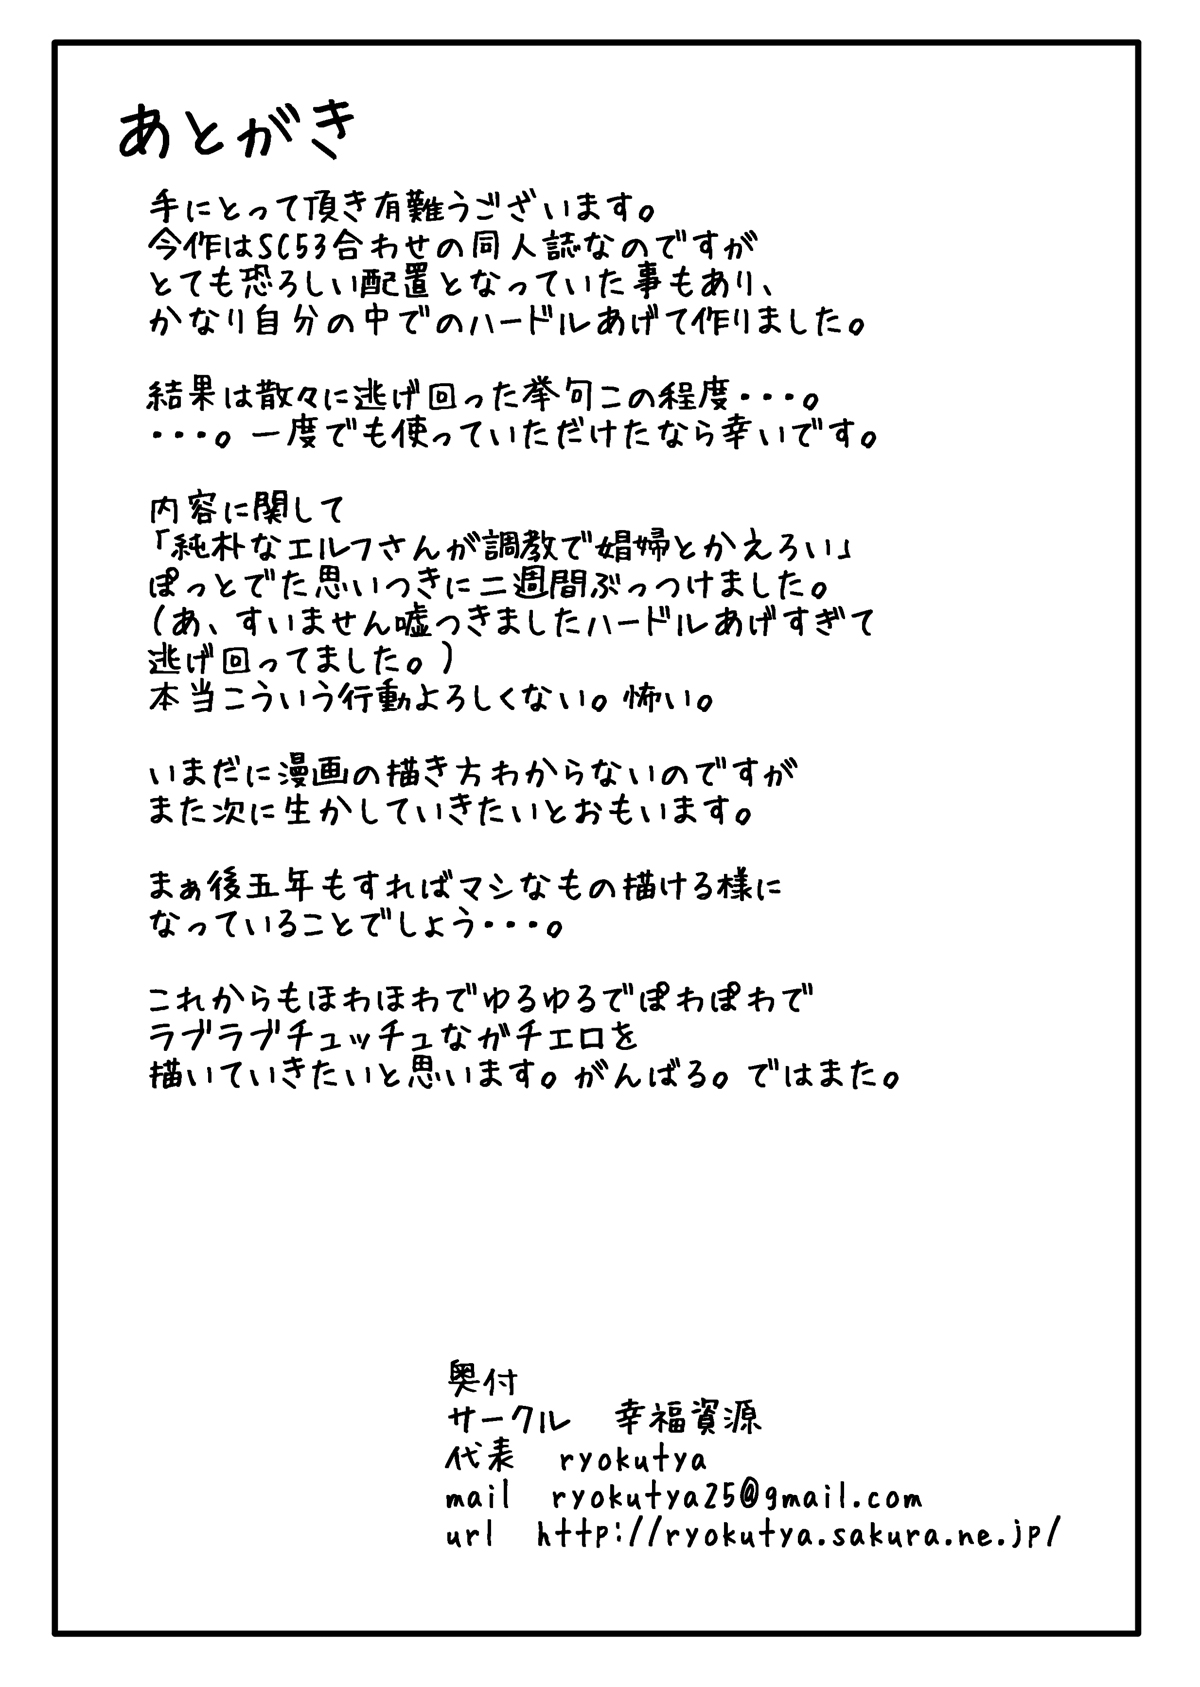 あとがき
手にとって頂き有難うございます。
今作はSC53合わせの同人誌なのですが
とても恐ろしい配置となっていた事もあり、
かなり自分の中でのハードルあげて作りました。
結果は散々に逃げ回った挙句この程度・・・。
・・・。一度でも使っていただけたなら幸いです。
内容に関して
「純朴なエルフさんが調教で娼婦とかえろい」
ぽっとでた思いつきに二週間ぶっつけました。
(あ、すいません嘘つきましたハードルあげすぎて
逃げ回ってました。)
本当こういう行動よろしくない。怖い。
いまだに漫画の描き方わからないのですが
また次に生かしていきたいとおもいます。
まぁ後五年もすればマシなもの描ける様に
なっていることでしょう・・・。
これからもほわほわでゆるゆるでぽわぽわで
ラブラブチュッチュながチエロを
描いていきたいと思います。がんばる。ではまた。
奥付
サークル　幸福資源
代表　ryokutya
mail　ryokutya25@gmail.com
url　http://ryokutya.sakura.ne.jp/